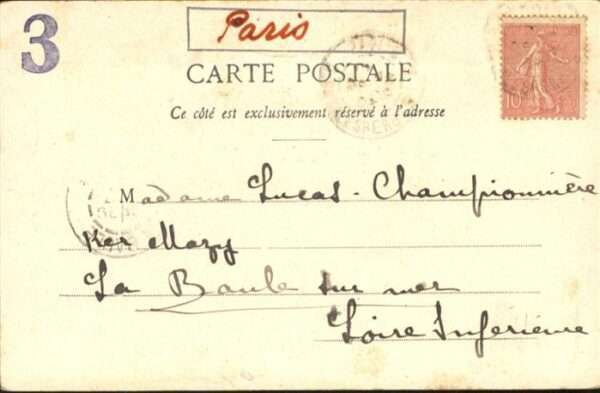 3
Paris
CARTE POSTALE
Ce côté est exclusivement réservé à l'adresse
10
Madame Lucas-Championnière
Ker Mazy
La Baule sur mer
Loire Inferieure